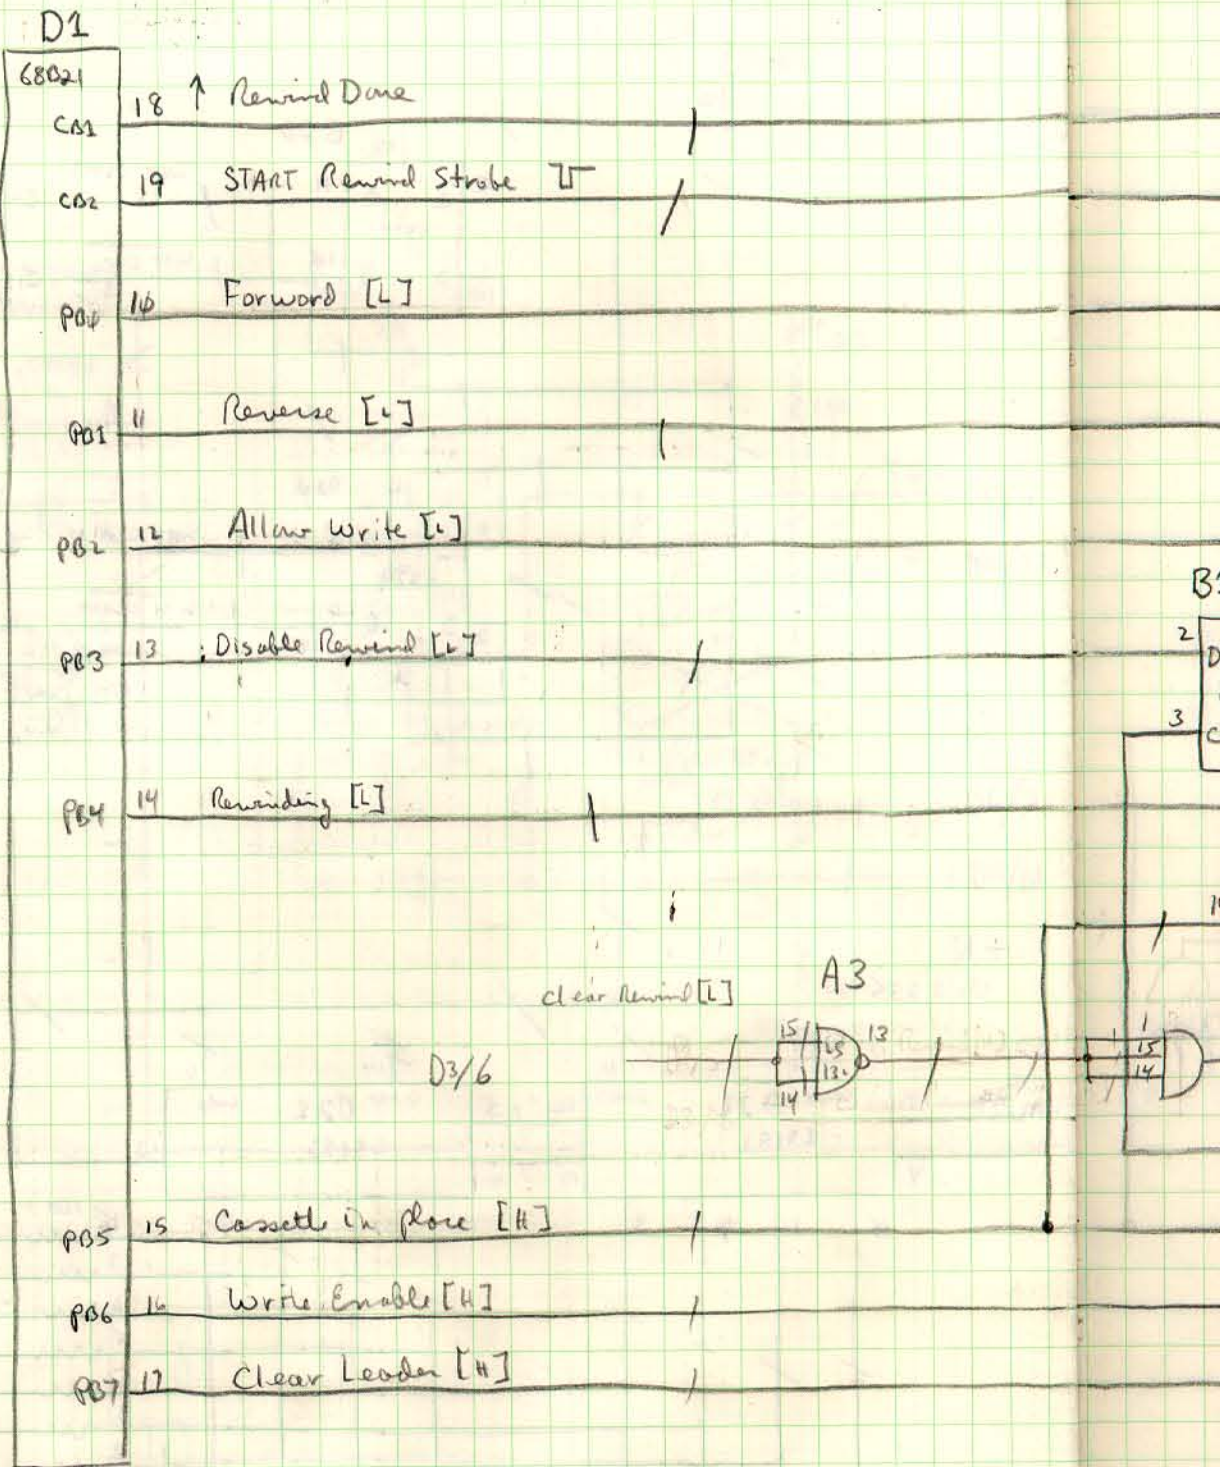 D1
68B21
CB1 18 ↑ Rewind Done
CB2 19 START Rewind Strobe
PBφ 1φ Forword [L]
PB1 11 Reverse [L]
PB2 12 Allow Write [L]
B1
PB3 13 Disable Rewind [L] 2 D
3 C
PB4 14 Rewinding [L]
A3
clear Rewind [L]
15 LS 13 1 15
D3/6
14 14
PB5 15 Cassette in place [H]
PB6 16 Write Enable [H]
PB7 17 Clear Leader [H]